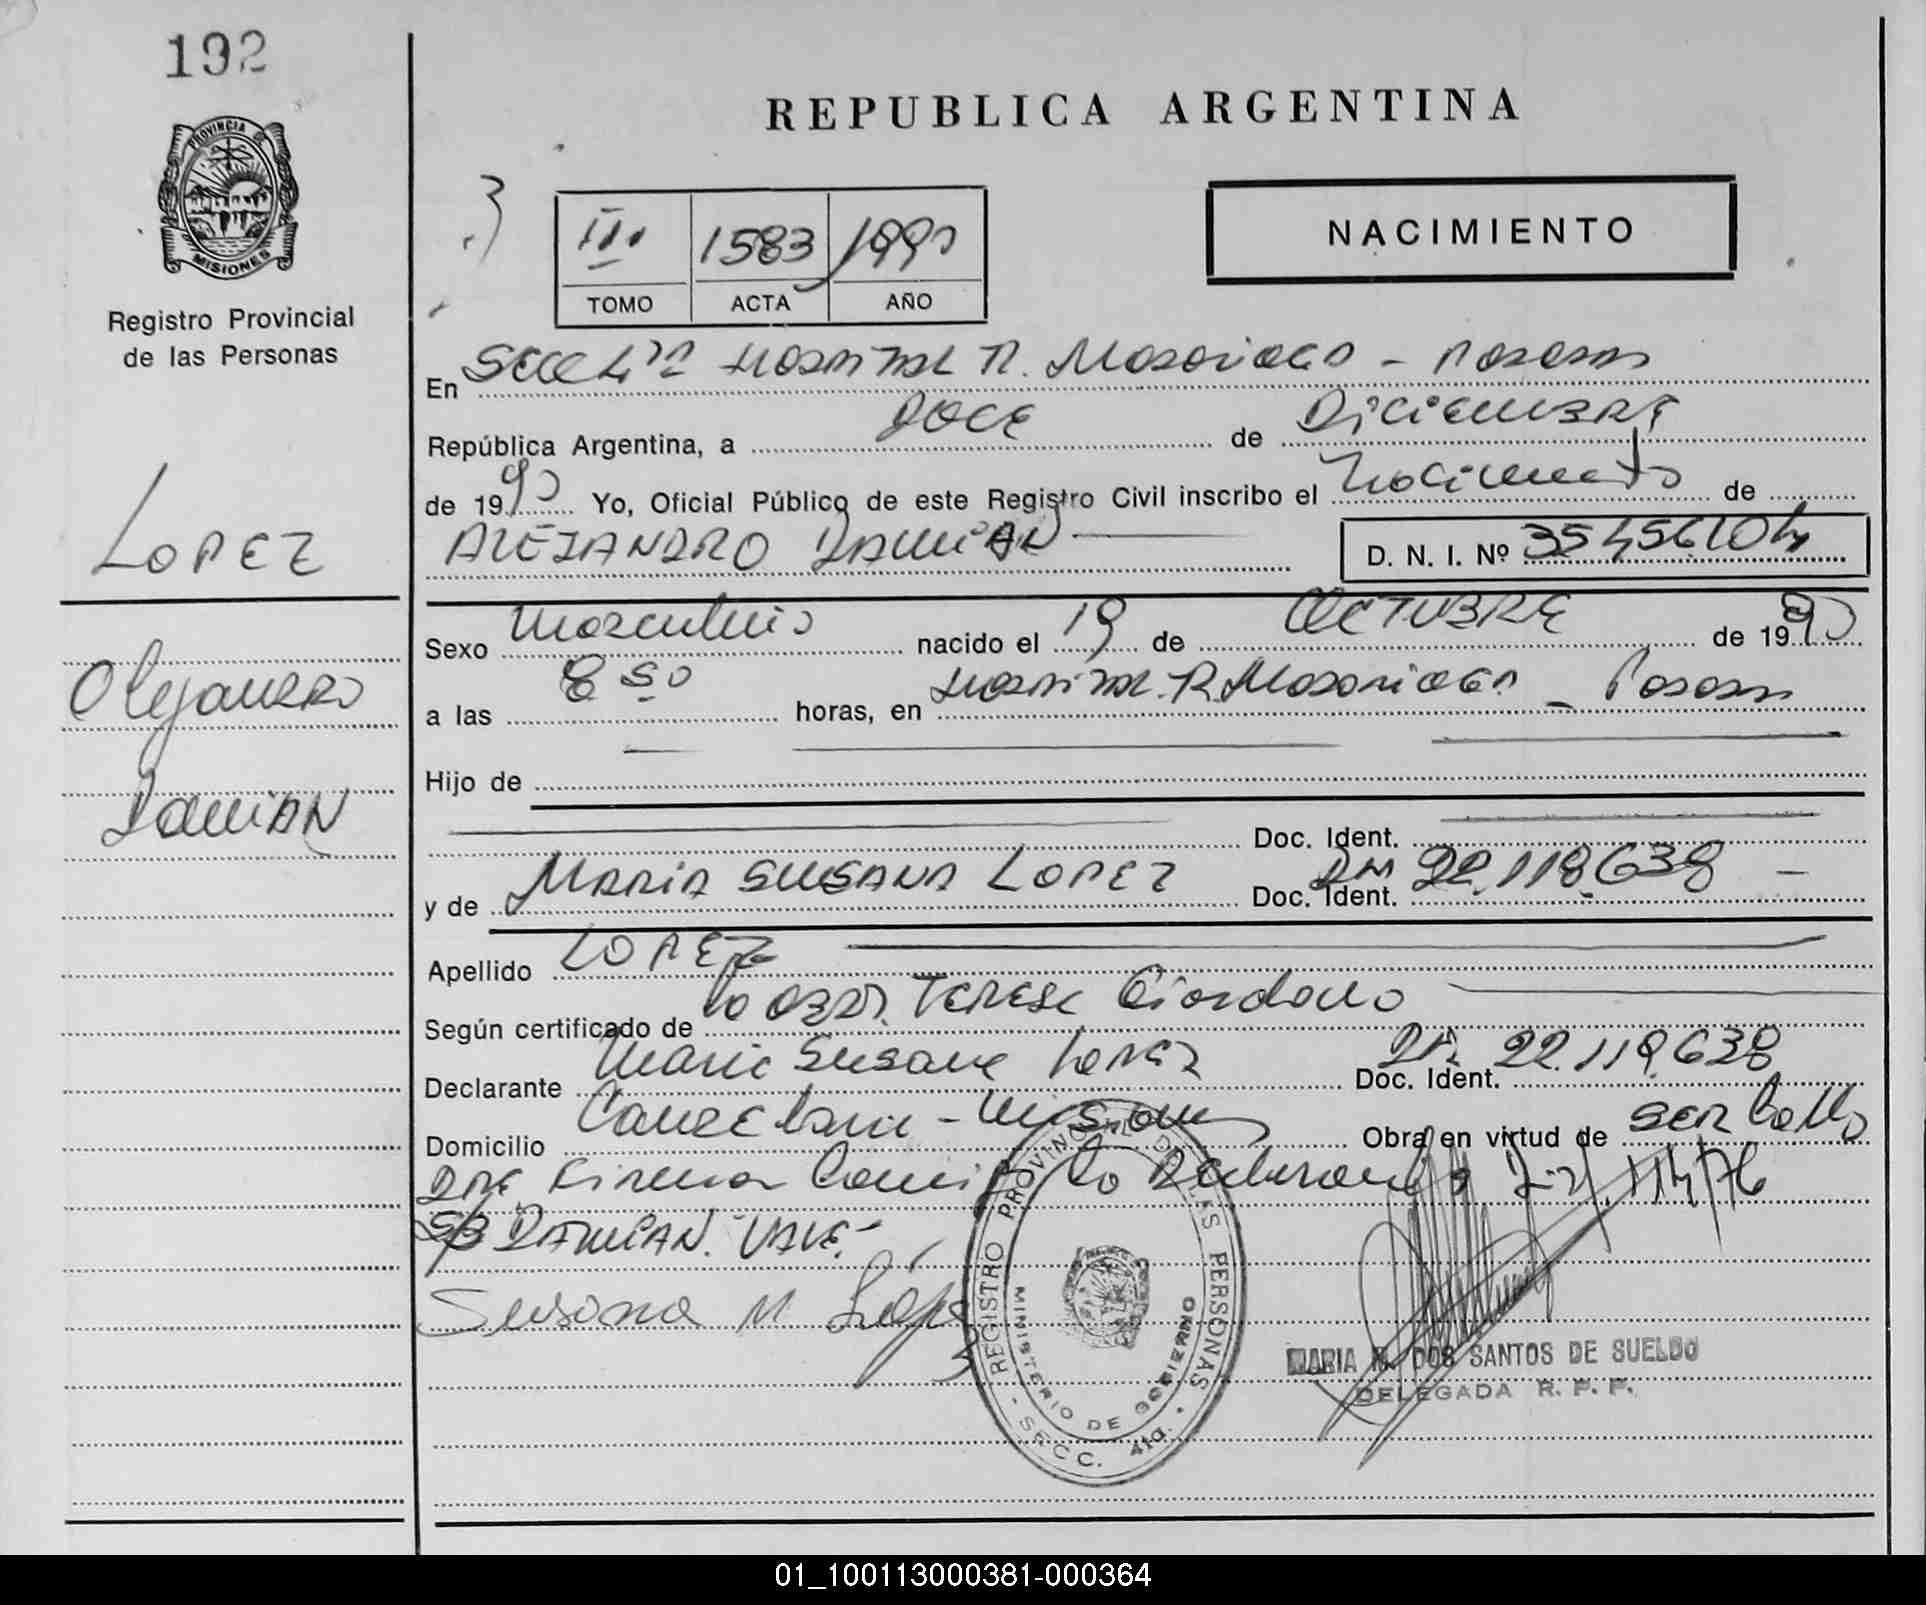 192
PROVINCIA DE
MISIONES
Registro Provincial
de las Personas
LOPEZ
Alejandro
Damian
REPUBLICA ARGENTINA
III 1583 1990
TOMO ACTA AÑO
NACIMIENTO
En Secc 4ta Hospital R. Madariaga - Posadas
República Argentina, a DOCE de Diciembre
de 1990 Yo, Oficial Público de este Registro Civil inscribo el Nacimiento de
ALEJANDRO DAMIAN D. N. I. Nº
Sexo Masculino nacido el 19 de OCTUBRE de 1990
a las 8 50 horas, en Hospital R. Madariaga - Posadas
Hijo de
Doc. Ident.
y de MARIA SUSANA LOPEZ Doc. Ident. DNI 22.118.638 -
Apellido LOPEZ
Según certificado de la Obst. Terese Giordano
Declarante Maria Susana Lopez Doc. Ident. DNI 22.118.638
Domicilio Candelaria - Misiones Obra en virtud de ser la M
Dre. Firman Conmigo la Declarante
S/B DAMIAN. VALE.-
Susana M. López
REGISTRO PROVINCIAL DE LAS PERSONAS
MINISTERIO DE GOBIERNO
- SECC. 4ta. -
MARIA DOS SANTOS DE SUELDO
DELEGADA R. P. P.
01_100113000381-000364